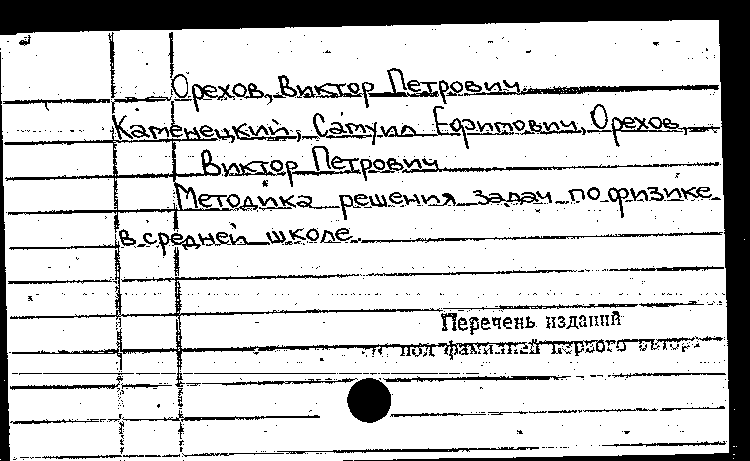 Орехов, Виктор Петрович
Каменецкий, Самуил Ефимович, Орехов,
Виктор Петрович
Методика решения задач по физике
в средней школе.
Перечень изданий
под фамилией первого автора